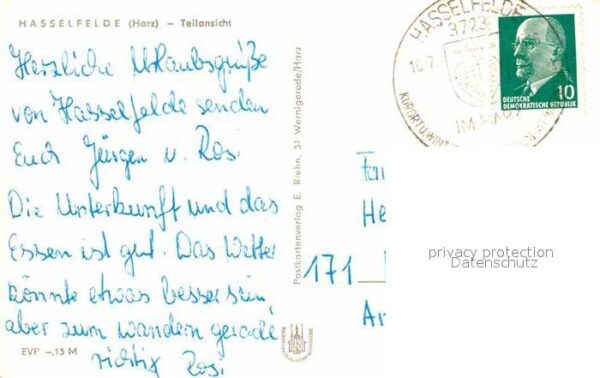 HASSELFELDE (Harz) – Teilansicht
Herzliche Urlaubsgrüße
von Hasselfelde senden
Euch Jürgen u. Ros.
Die Unterkunft und das
Essen ist gut. Das Wetter
könnte etwas besser sein,
aber zum wandern gerade
richtig Ros.
EVP –.15 M
Postkartenverlag E. Riehn, 37 Wernigerode/Harz
HASSELFELDE
3723
IM HARZ
KURORT U. WINT
DEUTSCHE
DEMOKRATISCHE REPUBLIK
10
Fam
He
171
privacy protection
Datenschutz